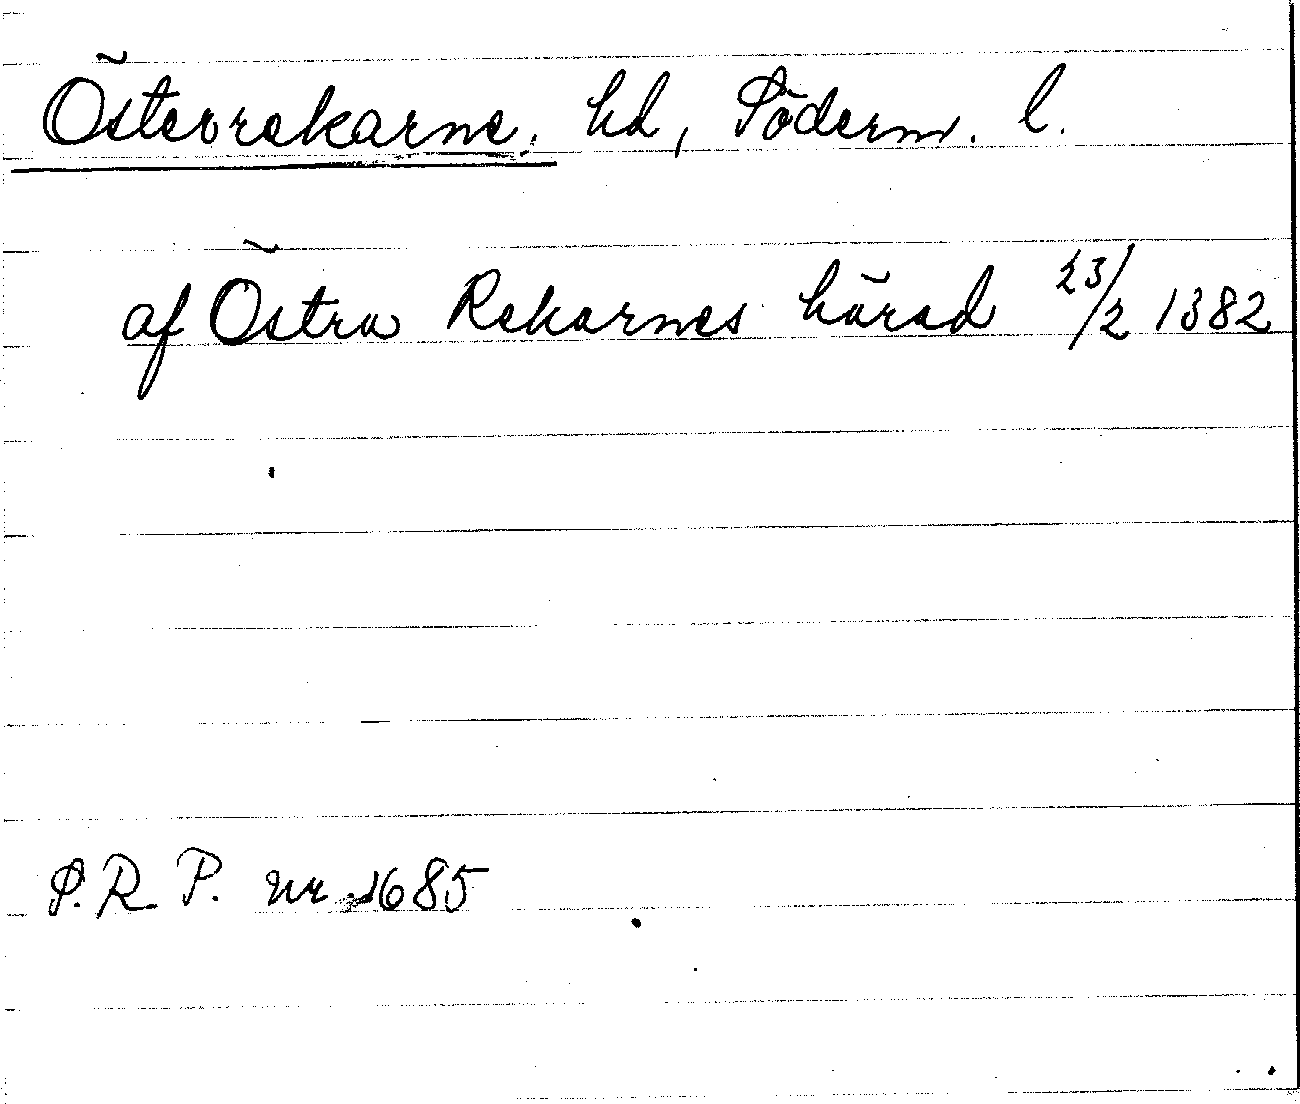 Österrekarne, hd, Söderm. l.
af Östra Rekarnes härad 23/2 1382
S.R.P. nr 1685